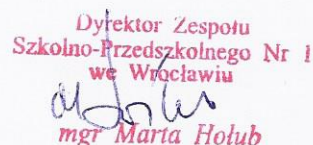 Dyrektor Zespołu
Szkolno-Przedszkolnego Nr 1
we Wrocławiu
mgr Marta Hołub